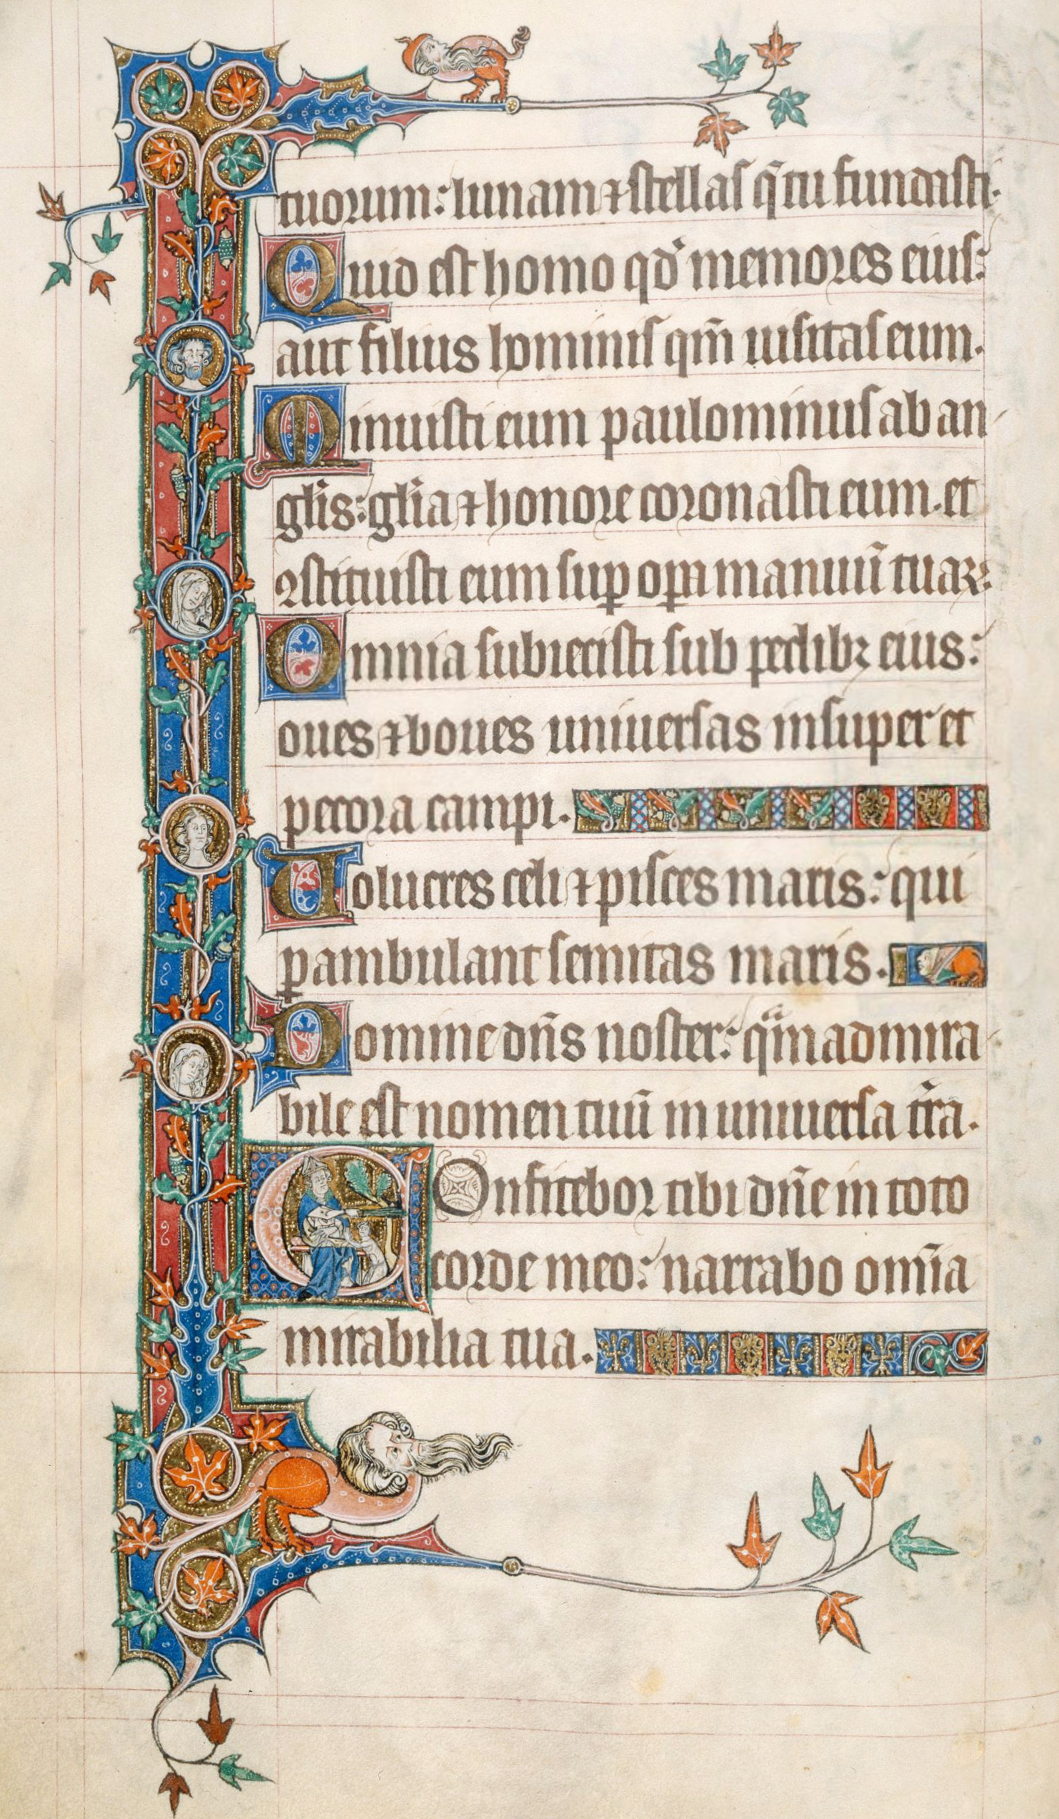 tuorum: lunam ⁊ stellas q̄ tu fundasti.
Quid est homo qd̓ memores eius:
aut filius hominis qm̄ uisitas eum.
Minuisti eum paulominus ab an
gl̓is: gl̓ia ⁊ honore coronasti eum. et
ꝯstituisti eum sup op̓a manuū tuaꝝ.
Omnia subiecisti sub pedibꝫ eius:
oues ⁊ boues uniuersas insuper et
pecora campi.
Uolucres celi ⁊ pisces maris: qui
ꝑambulant semitas maris.
Domine dn̄s noster: qm̄ admira
bile est nomen tuū in uniuersa t̓ra.
Confitebor tibi dn̄e in toto
corde meo: narrabo om̄ia
mirabilia tua.